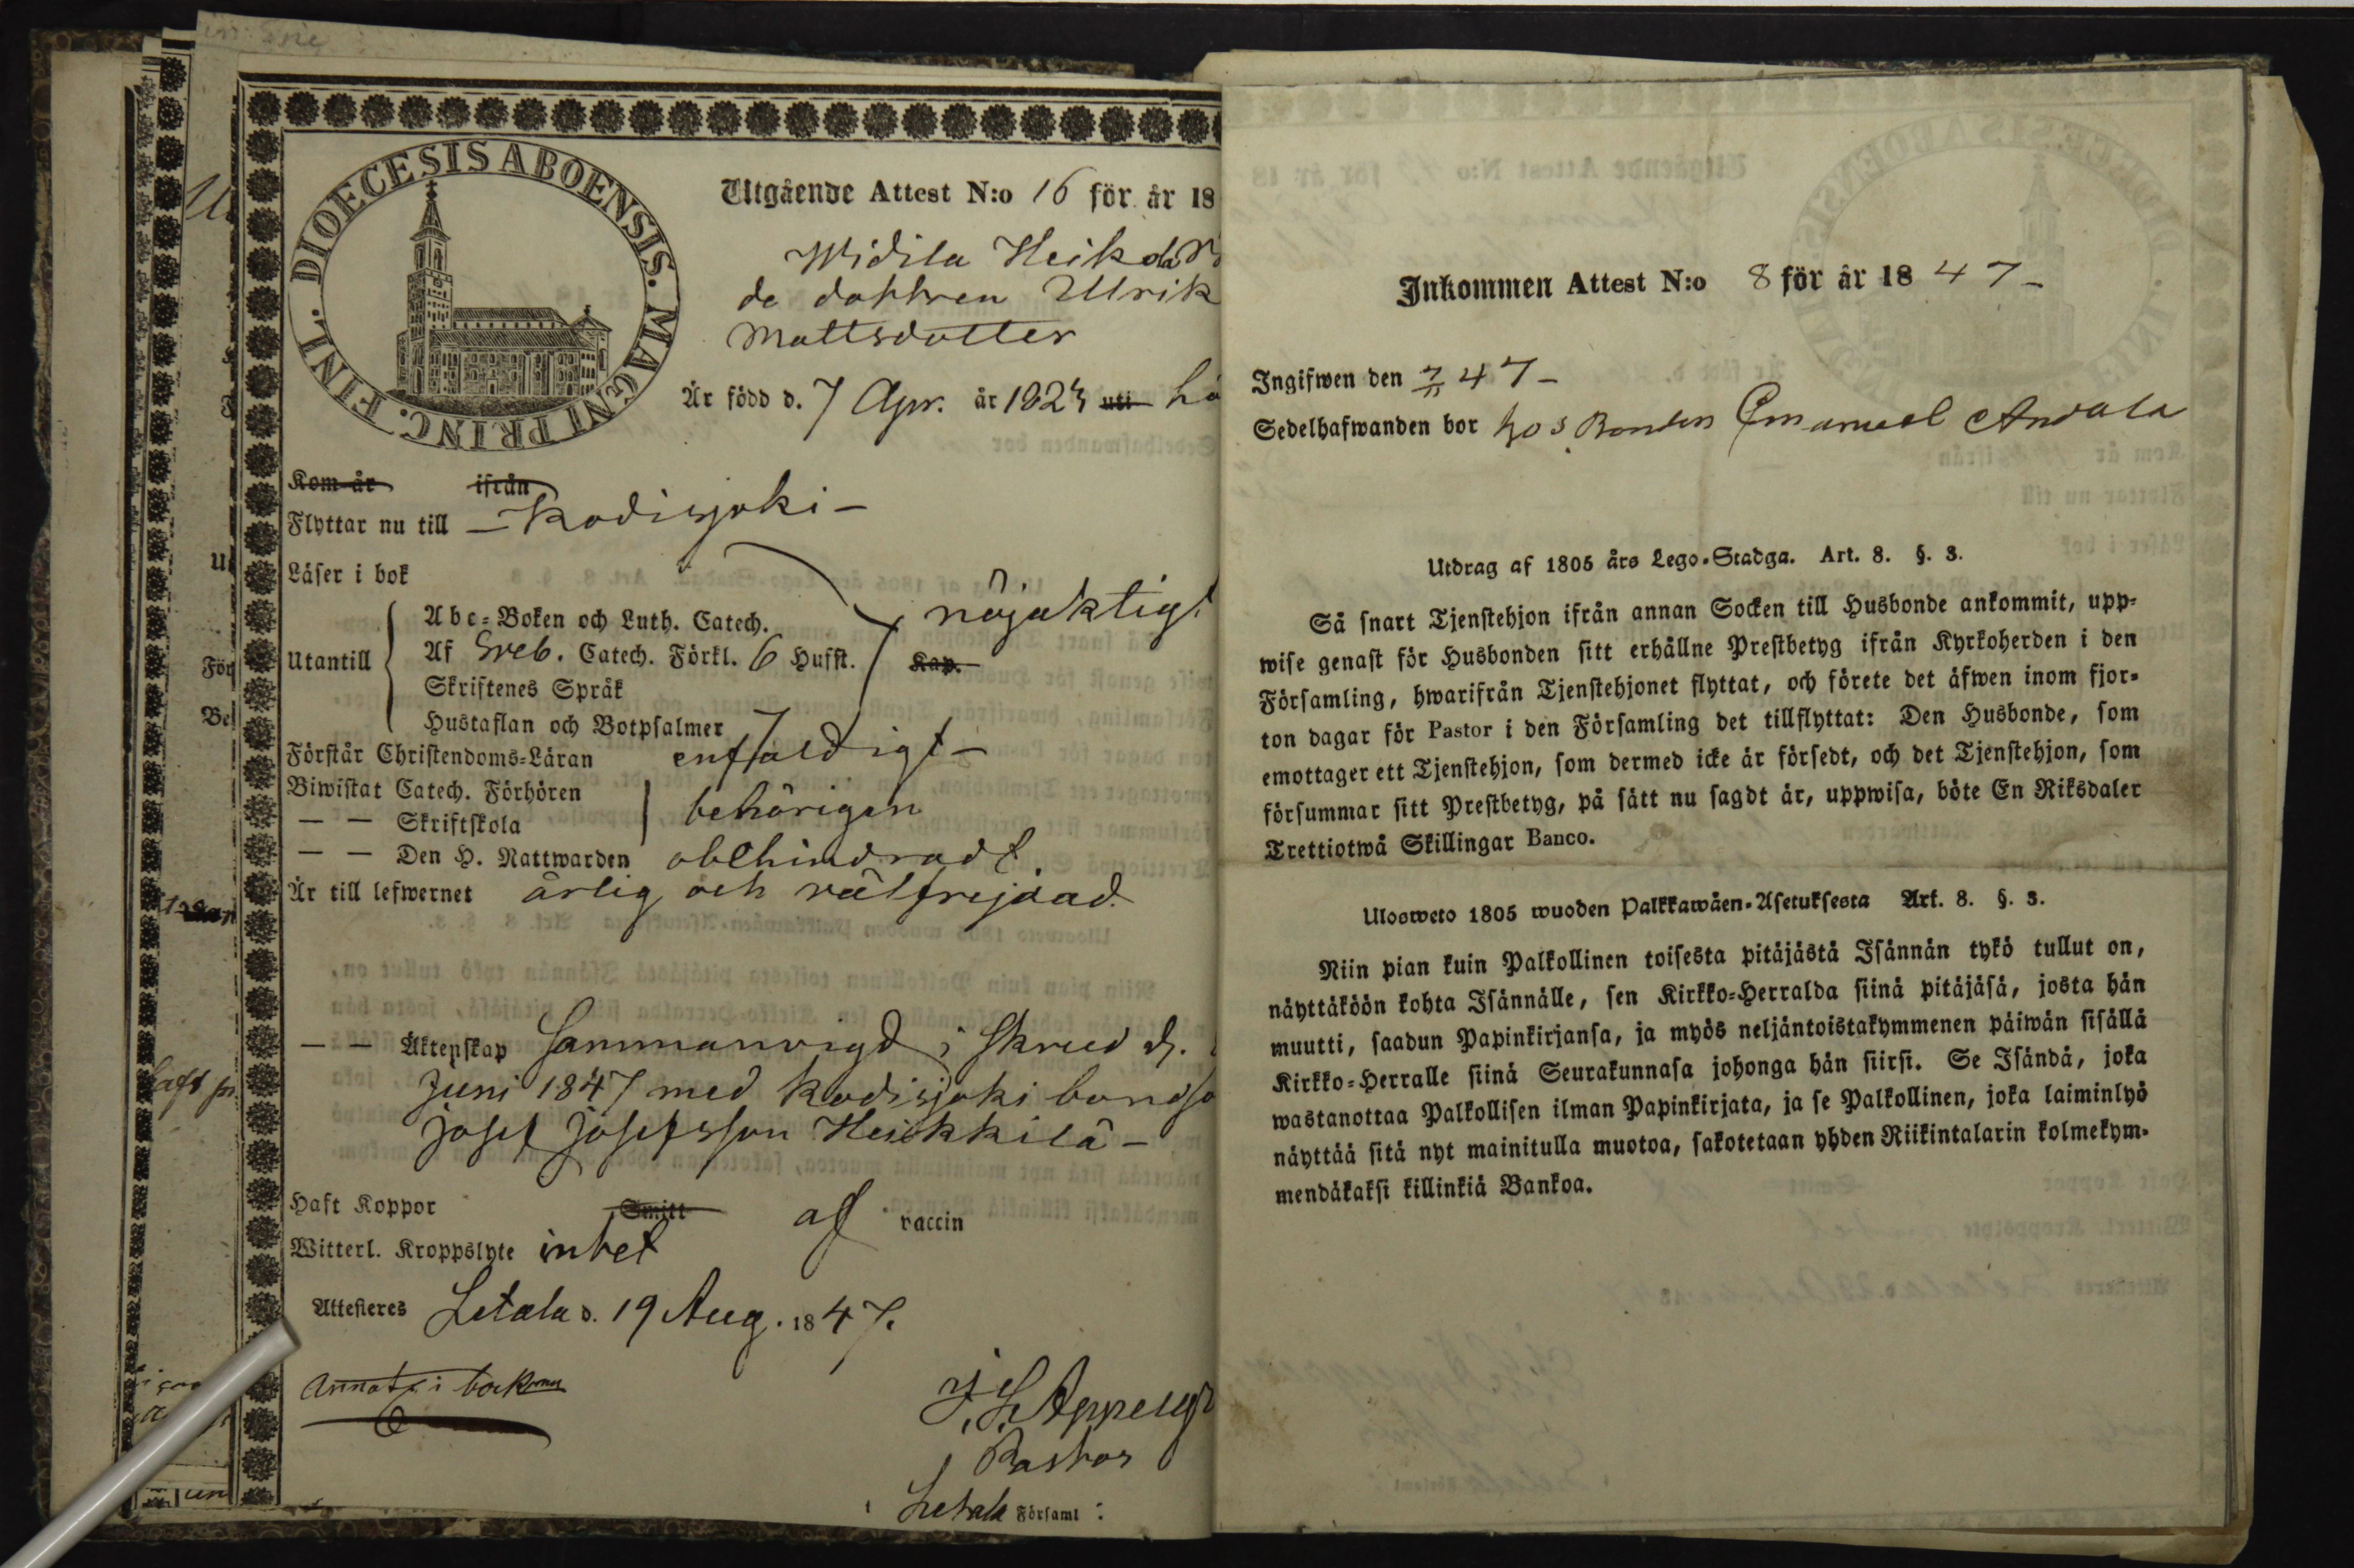 DIOECESIS ABOENSIS. MAGNI PRINC. FINL.
Utgående Attest N:o 16 för år 18
Widila Heik
de dottren Ulrik
Mattsdotter
Är född d. 7 Apr. år 1823 uti
Kom år ifrån
Flyttar nu till – Kodisjoki –
Läser i bok
Utantill
Abc-Boken och Luth. Catech.
nöjaktigt
Af Sveb. Catech. Förkl. 6 Hufst. Kap.
Skriftenes Språk
Hustaflan och Botpsalmer
Förstår Christendoms-Läran enfaldigt –
Biwistat Catech. Förhören
behörigen
— — Skriftskola
— — Den H. Nattwarden obehindradt.
Är till lefwernet ärlig och välfrejdad.
— — Äktenskap Sammanvigd i
Juni 1847 med Kodisjoki
Josef Josefsson Heikkilä –
Haft Koppor Smitt af vaccin
Witterl. Kroppslyte intet
Attesteres Letala d. 19 Aug. 1847.
Annot. i
Pastor
i Letala Församl :
Inkommen Attest N:o 8 för år 1847–
Ingifwen den 47–
Sedelhafwanden bor hos Bonden Emanuel Andala
Utdrag af 1805 års Lego-Stadga. Art. 8. §. 3.
Så snart Tjenstehjon ifrån annan Socken till Husbonde ankommit, upp-
wise genast för Husbonden sitt erhållne Prestbetyg ifrån Kyrkoherden i den
Församling, hwarifrån Tjenstehjonet flyttat, och förete det äfwen inom fjor-
ton dagar för Pastor i den Församling det tillflyttat: Den Husbonde, som
emottager ett Tjenstehjon, som dermed icke är försedt, och det Tjenstehjon, som
försummar sitt Prestbetyg, på sätt nu sagdt är, uppwisa, böte En Riksdaler
Trettiotwå Skillingar Banco.
Ulosweto 1805 wuoden Palkkawäen-Asetuksesta Art. 8. §. 3.
Niin pian kuin Palkollinen toisesta pitäjästä Isännän tykö tullut on,
näyttäköön kohta Isännälle, sen Kirkko-Herralda siinä pitäjäsä, josta hän
muutti, saadun Papinkirjansa, ja myös neljäntoistakymmenen päiwän sisällä
Kirkko-Herralle siinä Seurakunnasa johonga hän siirsi. Se Isändä, joka
wastanottaa Palkollisen ilman Papinkirjata, ja se Palkollinen, joka laiminlyö
näyttää sitä nyt mainitulla muotoa, sakotetaan yhden Riikintalarin kolmekym-
mendäkaksi killinkiä Bankoa.